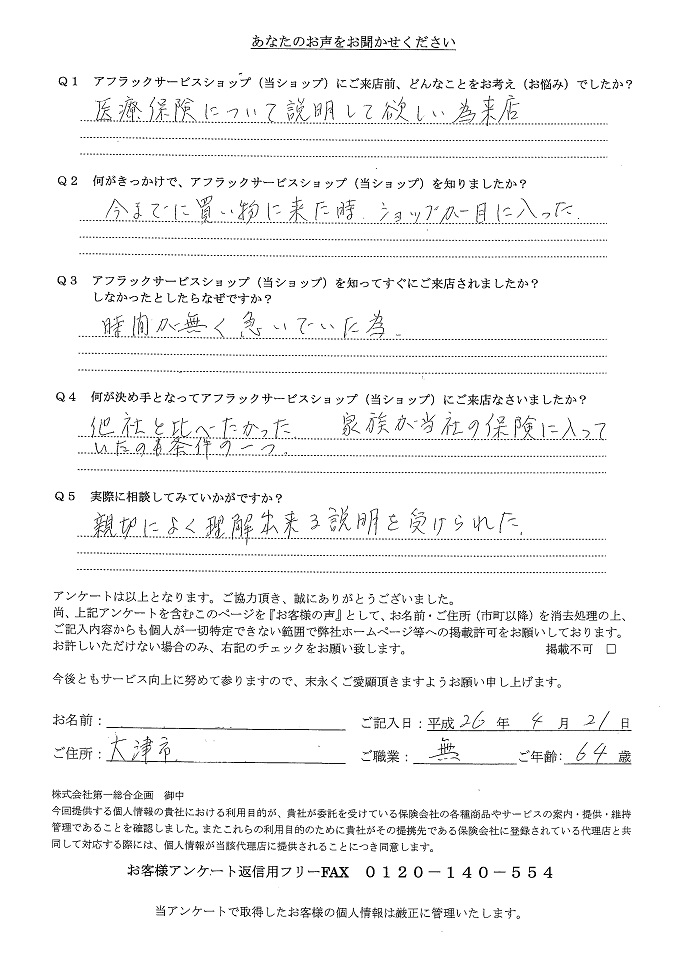 あなたのお声をお聞かせください
Q1 アフラックサービスショップ（当ショップ）にご来店前、どんなことをお考え（お悩み）でしたか？
医療保険について説明して欲しい為来店
Q2 何がきっかけで、アフラックサービスショップ（当ショップ）を知りましたか？
今までに買い物に来た時 ショップが目に入った.
Q3 アフラックサービスショップ（当ショップ）を知ってすぐにご来店されましたか？
しなかったとしたらなぜですか？
時間が無く急いでいた為.
Q4 何が決め手となってアフラックサービスショップ（当ショップ）にご来店なさいましたか？
他社と比べたかった 家族が当社の保険に入って
いたのも条件の一つ.
Q5 実際に相談してみていかがですか？
親切によく理解出来る説明を受けられた.
アンケートは以上となります。ご協力頂き、誠にありがとうございました。
尚、上記アンケートを含むこのページを『お客様の声』として、お名前・ご住所（市町以降）を消去処理の上、
ご記入内容からも個人が一切特定できない範囲で弊社ホームページ等への掲載許可をお願いしております。
お許しいただけない場合のみ、右記のチェックをお願い致します。 掲載不可 □
今後ともサービス向上に努めて参りますので、末永くご愛顧頂きますようお願い申し上げます。
お名前： ご記入日：平成 26 年 4 月 21 日
ご住所： 大津市 ご職業： 無 ご年齢： 64 歳
株式会社第一総合企画 御中
今回提供する個人情報の貴社における利用目的が、貴社が委託を受けている保険会社の各種商品やサービスの案内・提供・維持
管理であることを確認しました。またこれらの利用目的のために貴社がその提携先である保険会社に登録されている代理店と共
同して対応する際には、個人情報が当該代理店に提供されることにつき同意します。
お客様アンケート返信用フリーFAX 0120－140－554
当アンケートで取得したお客様の個人情報は厳正に管理いたします。